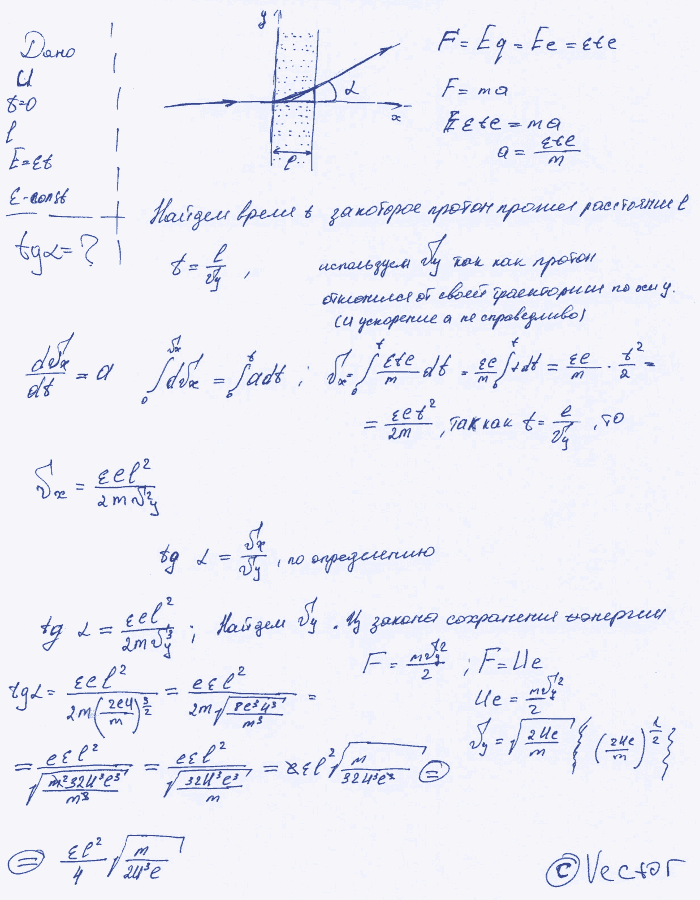 Дано
U
t=0
l
E=εt
ε-const
tgα=?
y
α
x
l
F=Eq=Ee=εte
F=ma
εte=ma
a=εte/m
Найдем время t за которое протон прошел расстояние l
t=l/υy,
используем υy так как протон
отклонился от своей траектории по оси y.
(и ускорение a не справедливо)
dυx/dt=a ∫₀^υx dυx=∫₀^t adt; υx=∫₀^t εte/m dt=εe/m ∫₀^t tdt=εe/m·t²/2=
=εet²/2m, так как t=l/υy, то
υx=εel²/2mυ²y
tg α=υx/υy, по определению
tg α=εel²/2mυy³; Найдем υy. Из закона сохранения энергии
F=mυy²/2; F=Ue
Ue=mυy²/2
υy=√(2Ue/m) {(2Ue/m)^(1/2)}
tgα=εel²/2m(2eU/m)^(3/2)=eεl²/2m√(8e³U³/m³)=
=eεl²/√(m²32U³e³/m³)=eεl²/√(32U³e³/m)=εl²√(m/32U³e)=
=εl²/4 √(m/2U³e)
©Vector